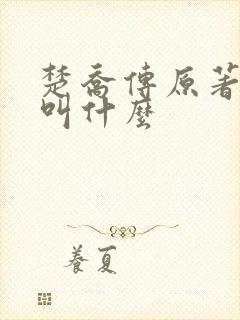 楚喬傳原著
叫什麼
養夏